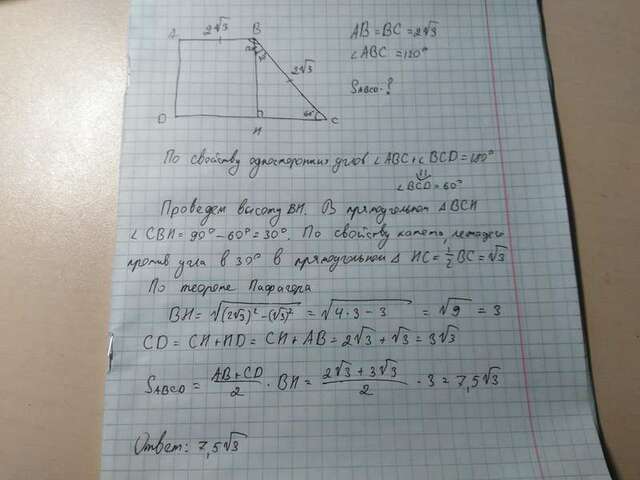 2√3
A B AB = BC = 2√3
∠ABC = 120°
2√3
SABCD - ?
D H C 60°
По свойству односторонних углов ∠ABC + ∠BCD = 180°
⇓
∠BCD = 60°
Проведем высоту BH. В прямоугольном △BCH
∠CBH = 90° - 60° = 30°. По свойству катета, лежащего
против угла в 30° в прямоугольном △ HC = 1/2 BC = √3
По теореме Пифагора
BH = √((2√3)² - (√3)²) = √(4·3 - 3) = √9 = 3
CD = CH + HD = CH + AB = 2√3 + √3 = 3√3
SABCD = (AB + CD)/2 · BH = (2√3 + 3√3)/2 · 3 = 7,5√3
Ответ: 7,5√3